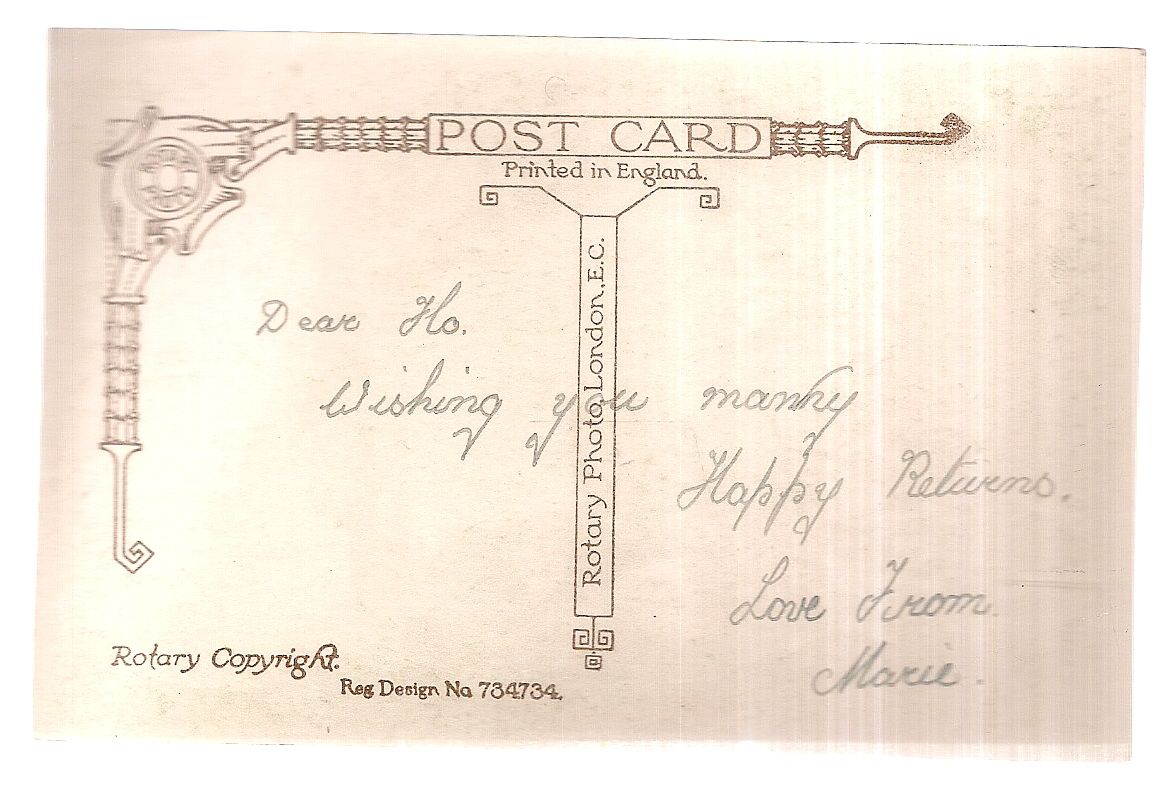 POST CARD
Printed in England.
Rotary Photo, London, E.C.
Dear Flo.
Wishing you manny
Happy Returns.
Love From.
Marie.
Rotary Copyright.
Reg Design No 734734.